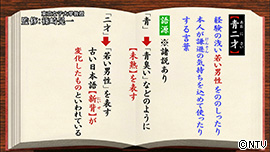 【青二才】
経験の浅い若い男性をののしったり
本人が謙遜の気持ちを込めて使ったり
する言葉
語源 ※諸説あり
「青」➡「青臭い」などのように
【未熟】を表す
「二才」➡「若い男性」を表す
古い日本語【新背】が
変化したものといわれている
©NTV